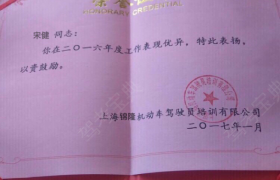 宋健 同志：
你在二〇一六年度工作表现优异，特此表扬，
以资鼓励。
上海锦隆机动车驾驶员培训有限公司
二〇一七年一月